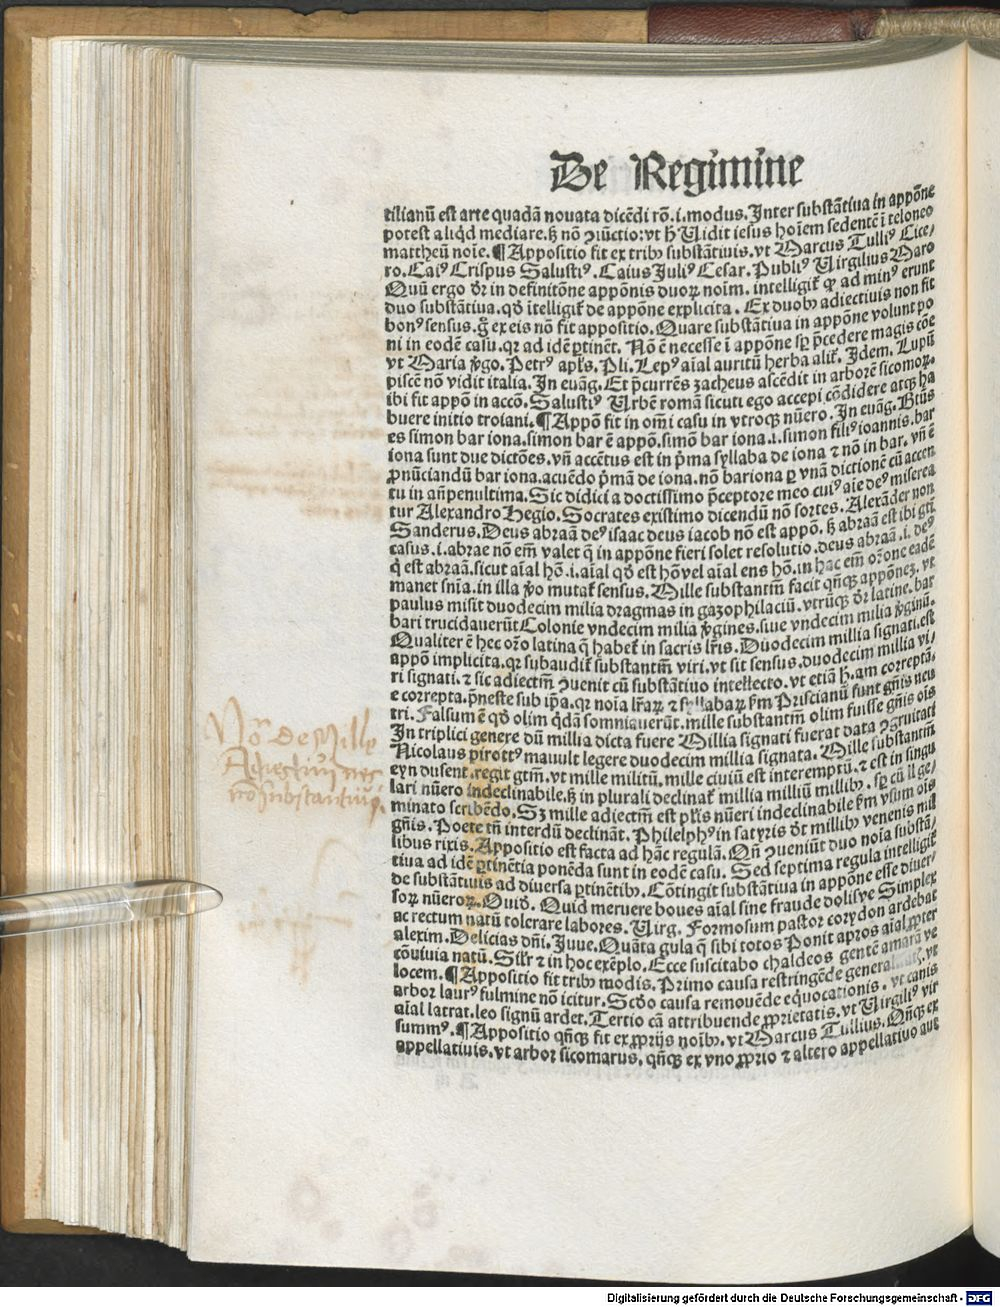 De Regimine
tilianū est arte quadā nouata dicēdi rō.i.modus. Inter substātiua in appōne
potest aliqd mediare.ꝫ nō ꝯiūctio: vt ħ Uidit iesus hoīem sedentē ī teloneo
mattheū noīe. ¶ Appositio fit ex tribꝰ substātiuis. vt Marcus Tulliꝰ Cice/
ro. Caiꝰ Crispus Salustiꝰ. Caius Juliꝰ Cesar. Publiꝰ Uirgilius Maro
Quū ergo dr̄ in definitōne appōnis duoꝝ noīm. intelligit̄ ꝙ ad minꝰ erunt
duo substātiua. qd̄ ītelligit̄ de appōne explicita. Ex duobꝰ adiectiuis non fit
bonꝰ sensus. g̊ ex eis nō fit appositio. Quare substātiua in appōne volunt po
ni in eodē casu. qꝛ ad idē ꝑtinēt. Nō ē necesse ī appōne sꝑ p̄cedere magis cōe
vt Maria v̄go. Petrꝰ apl̄s. Pli. Lepꝰ aīal auritū herba alit̄. Idem. Lupū
piscē nō vidit italia. In euāg. Et p̄currēs zacheus ascēdit in arborē sicomoꝝ.
ibi fit appō in accō. Salustiꝰ Urbē romā sicuti ego accepi cōdidere atqꝫ ha
buere initio troiani. ¶ Appō fit in om̄i casu in vtroqꝫ nūero. In euāg. Btūs
es simon bar iona. simon bar ē appō. simō bar iona .i. simon filiꝰ ioannis. bar
iona sunt due dictōes. vn̄ accētus est in p̄ma syllaba de iona ⁊ nō in bar. vn̄ ē
ꝓnūciandū bar iona. acuēdo p̄mā de iona. nō bariona ꝑ vnā dictionē cū accen
tu in an̄penultima. Sic didici a doctissimo p̄ceptore meo cuiꝰ aīe deꝰ miserea
tur Alexandro Hegio. Socrates existimo dicendū nō sortes. Alexāder non
Sanderus. Deus abraā deꝰ isaac deus iacob nō est appō. ꝫ abraā est ibi gtī
casus .i. abrae nō em̄ valet q̄ in appōne fieri solet resolutio. deus abraā .i. deꝰ
q̄ est abraā. sicut aīal hō .i. aīal qd̄ est hō vel aīal ens hō. in hac em̄ or̄one eadē
manet sn̄ia. in illa v̄o mutat̄ sensus. Mille substantīm facit qn̄qꝫ appōneꝫ. vt
paulus misit duodecim milia dragmas in gazophilaciū. vtrūqꝫ dr̄ latine. bar
bari trucidauerūt Colonie vndecim milia v̄gines. siue vndecim milia v̄ginū.
Qualiter ē hec or̄o latina q̄ habet̄ in sacris lr̄is. Duodecim millia signati. est
appō implicita. qꝛ subaudit̄ substantīm viri. vt sit sensus. duodecim millia vi/
ri signati. ⁊ sic adiectīm ꝯuenit cū substātiuo intellecto. vt etiā ħ. am correptā.
e correpta. p̄neste sub ip̄a. qꝛ noīa lr̄aꝝ ⁊ syllabaꝝ km̄ Priscianū sunt gn̄is neu
tri. Falsum ē qd̄ olim q̄dā somniauerūt. mille substantīm olim fuisse gn̄is oīs
In triplici genere dū millia dicta fuere Millia signati fuerat data ꝯgruitati
Nicolaus pirottꝰ mauult legere duodecim millia signata. Mille substantīm
eyn dusent. regit gtīm. vt mille militū. mille ciuiū est interemptū. ⁊ est in singu
lari nūero indeclinabile. ꝫ in plurali declinat̄ millia milliū millibꝰ. sꝑ cū ll ge/
minato scribēdo. Sꝫ mille adiectīm est pl̄is nūeri indeclinabile km̄ vsum oīs
gn̄is. Poete tn̄ interdū declināt. Philelphꝰ in satyris dt̄ millibꝰ venenis mil
libus rixis. Appositio est facta ad hāc regulā. Qn̄ ꝯueniūt duo noīa substā/
tiua ad idē ꝑtinētia ponēda sunt in eodē casu. Sed septima regula intelligit̄
de substātiuis ad diuersa ꝑtinētibꝰ. Cōtingit substātiua in appōne esse diuer/
soꝝ nūeroꝝ. Ouid. Quid meruere boues aīal sine fraude dolisꝗ Simplex
ac rectum natū tolerare labores. Uirg. Formosum pastor corydon ardebat
alexim. Delicias dn̄i. Juue. Quāta gula q̄ sibi totos Ponit apros aīal ꝓpter
cōuiuia natū. Sil̄r ⁊ in hoc exēplo. Ecce suscitabo chaldeos gentē amarā ve
locem. ¶ Appositio fit tribꝰ modis. Primo causa restringēde vt
arbor laurꝰ fulmine nō icitur. Scd̄o causa remouēde eq̇uocationis. vt canis
aīal latrat. leo signū ardet. Tertio cā attribuende ꝓprietatis. vt Uirgiliꝰ vir
summꝰ. ¶ Appositio qn̄qꝫ fit ex ꝓprijs noībꝰ. vt Marcus Tullius. Qn̄qꝫ ex
appellatiuis. vt arbor sicomarus. qn̄qꝫ ex vno ꝓprio ⁊ altero appellatiuo aut
No De Mille
Adiectiui nec
nō substantiui
Digitalisierung gefördert durch die Deutsche Forschungsgemeinschaft - DFG